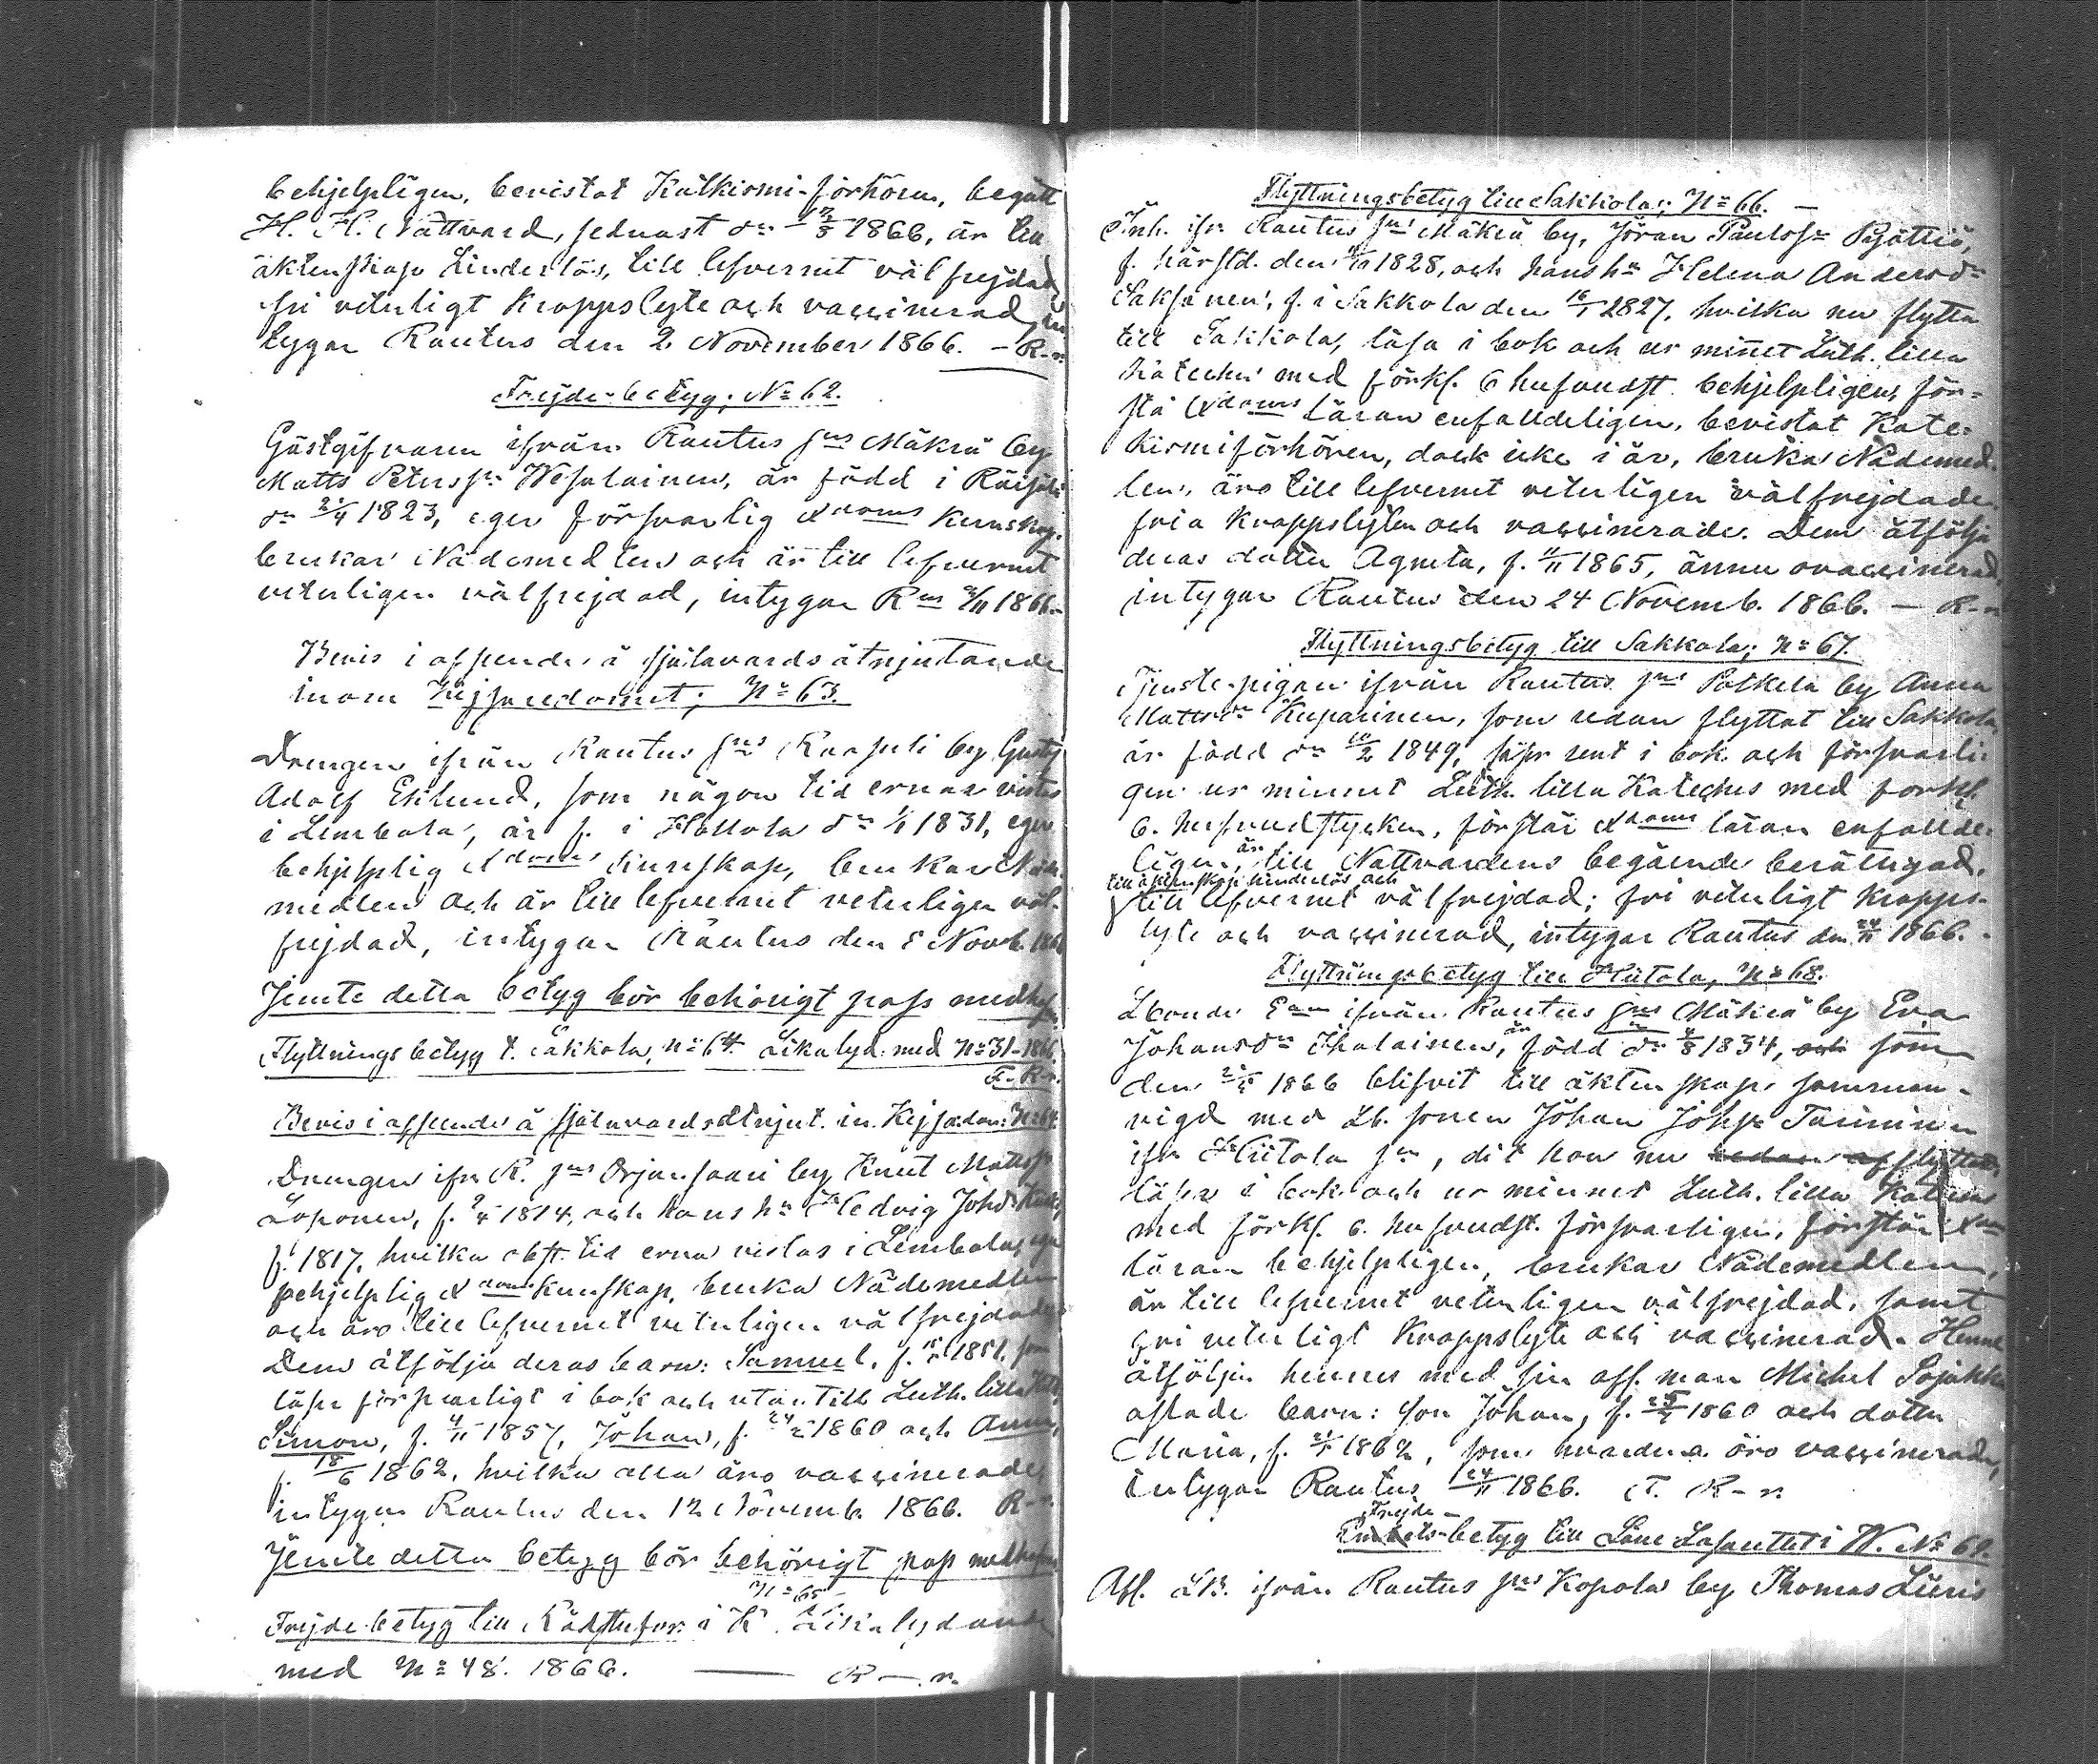 behjelpligen, bevistat Katkismi-förhören, begått
H. H. Nattvard, sednast dn 1866, är till
äktenskap hinderlös, till lefvernet välfrejdad,
fri veterligt kroppslyte och vaccinerad, in
tygar Rautus den 2 November 1866. – R-n.
Frejde-betyg; No 62.
Gästgifvaren ifrån Rautus sns Mäkrä by
Matts Peterss: Wesalainen, är född i Räisälä
dn 2/4 1823, eger försvarlig Xdoms kunskap,
brukar Nådemedlen och är till lefvernet
veterligen välfrejdad, intygar Rus 2/11 1866.
Bevis i afseende å själavards åtnjutande
inom Kejsaredömet; No 63.
Drengen ifrån Rautus sns Raasuli by Gustf
Adolf Eklund, som någon tid ernar vistas
i Lembala, är f. i Hollola dn 1831, eger
behjelplig Xdoms kunskap, brukar Nåde
medlen och är till lefvernet veterligen väl-
frejdad, intygar Rautus den 8 Novb. 1866
Jemte detta betyg bör behörigt pass medhafvas
Flyttningsbetyg t. Sakkola, No 64. Likalyd. med No 31-1866.
T. R-n.
Bevis i afseende å själavardsåtnjut. in. Kejsaredom: No 64.
Drengen ifn R. sns Orjansaari by Knut Mattss
Loponen, f. 1814, och hans hu Hedvig Johsdr
f. 1817, hvilka obst. tid erna vistas i Lembala, ega
behjelplig Xdoms kunskap, bruka Nådemedlen
och äro till lefvernet veterligen välfrejdade
Dem åtfölja deras barn: Samuel, f. 1851, som
läser försvarligt i bok och utan till Luth. lilla Kat.,
Simon, f. 4/11 1857, Johan, f. 1860 och Anna,
f. 18/6 1862, hvilka alla äro vaccinerade
intygar Rautus den 12 Novemb. 1866. R-n.
Jemte detta betyg bör behörigt pass medhafvas
No 65
Frejde-betyg till Rådstufvor. i K. Likalydande
med No 48. 1866. — R—n.
Flyttningsbetyg till Sakkola; No 66. —
Inh. ifn Rautus sns Mäkrä by, Jöran Paulss: Pyöttiö,
f. härstd. den 1828, och hans hu Helena Andersdr
Saksanen, f. i Sakkola den 16/1 2827, hvilka nu flytta
till Sakkola, läsa i bok och ur minnet Luth. lilla
Kateches med förkl. 6 hufvudst. behjelpligen, för-
stå Xdoms läran enfalldeligen, bevistat Kate-
kismiförhören, dock icke i år, bruka Nådemed-
len, äro till lefvernet veterligen välfrejdade
fria kroppslyten och vaccinerade. Dem åtfölja
deras dotter Agneta, f. 4/11 1865, ännu ovaccinerad,
intygar Rautus den 24 Novemb. 1866. — R-n
Flyttningsbetyg till Sakkola; No 67.
Tjenste-pigan ifrån Rautus sns Palkela by Anna
Mattsdr Kuparinen, som redan flyttat till Sakkola
är född dn 10/2 1849, läser rent i bok och försvarli-
gen ur minnet Luth. lilla Kateches med förkl.
6. hufvudstycken, förstår Xdoms läran enfallde-
ligen, är till Nattvardens begående berättigad,
till äktenskap hinderlös och
till lefvernet välfrejdad; fri veterligt kropps-
lyte och vaccinerad, intygar Rautus den 24/11 1866.
Flyttningsbetyg till Hiitola, No 68.
Lbonde Enn ifrån Rautus sns Mäkrä by Eva
Johansdr Ihalainen, är född dn 4/8 1834, och som
den 1866 blifvit till äktenskap samman-
vigd med Lb. sonen Johan Johss Tanninen
ifn Hiitola sn, dit hon nu redan afflyttat,
läser i bok och ur minnet Luth. lilla Kateches
med förkl. 6. hufvudst. försvarligen, förstår Xdoms
läran behjelpligen, brukar Nådemedlen,
är till lefvernet veterligen välfrejdad, samt
fri veterligt kroppslyte och vaccinerad. Henne
åtfölja hennes med sin aff. man Michel
aflade barn: son Johan, f. 1860 och dotter
Maria, f. 1862, som hvardera äro vaccinerade,
intygar Rautus 24/11 1866. T. R-n.
Frejde-
Embets-betyg till Läne Lasarettet i W. No 69.
Afsk. LB. ifrån Rautus sns Kopola by Thomas